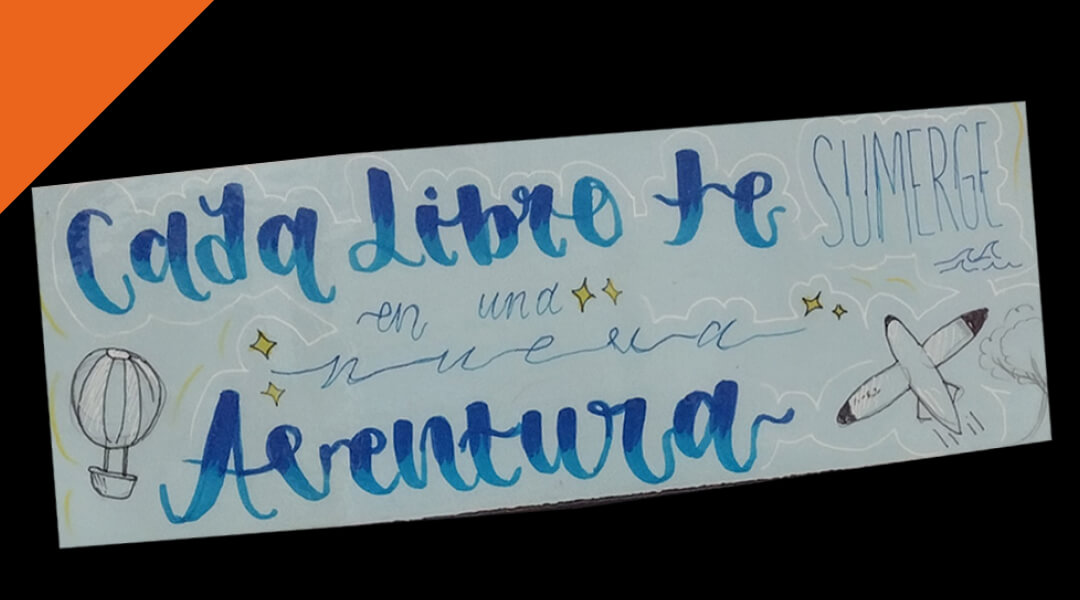 Cada Libro te SUMERGE
en una
nueva
Aventura